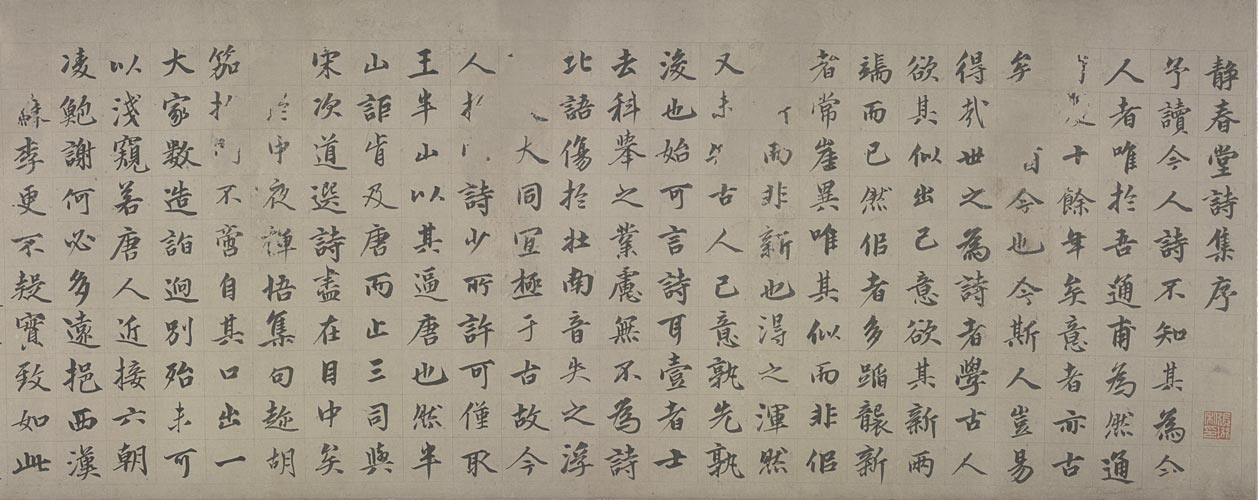 静春堂詩集序
予讀今人詩不知其為今
人者唯於吾通甫為然通
十餘年矣意者亦古
矣今也今斯人豈易
得哉世之為詩者學古人
欲其似出己意欲其新兩
端而已然佀者多蹈襲新
者常崖異唯其似而非佀
而非新也得之渾然
又未古人己意孰先孰
後也始可言詩耳壹者士
去科舉之業處無不為詩
北語傷於壯南音失之浮
大同宜極于古故今
人詩少所許可僅取
王半山以其逼唐也然半
山詎肯及唐而止三司與
宋次道選詩盡在目中矣
中夜禪悟集句趂胡
笳不啻自其口出一
大家數造詣迥別殆未可
以淺窺若唐人近接六朝
凌鮑謝何必多遠挹西漢
蘇李更不疑實致如此